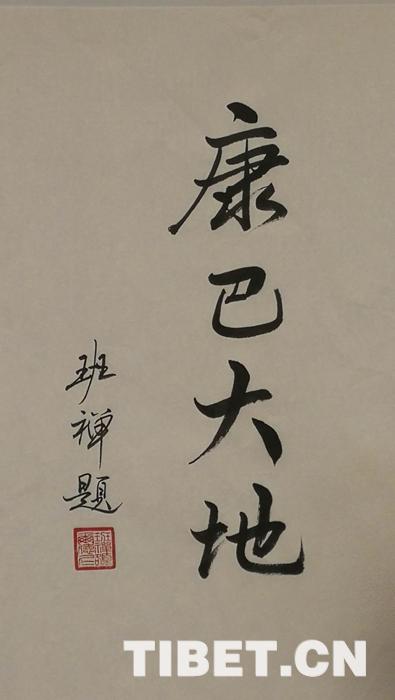 康巴大地
班禅题
TIBET.CN